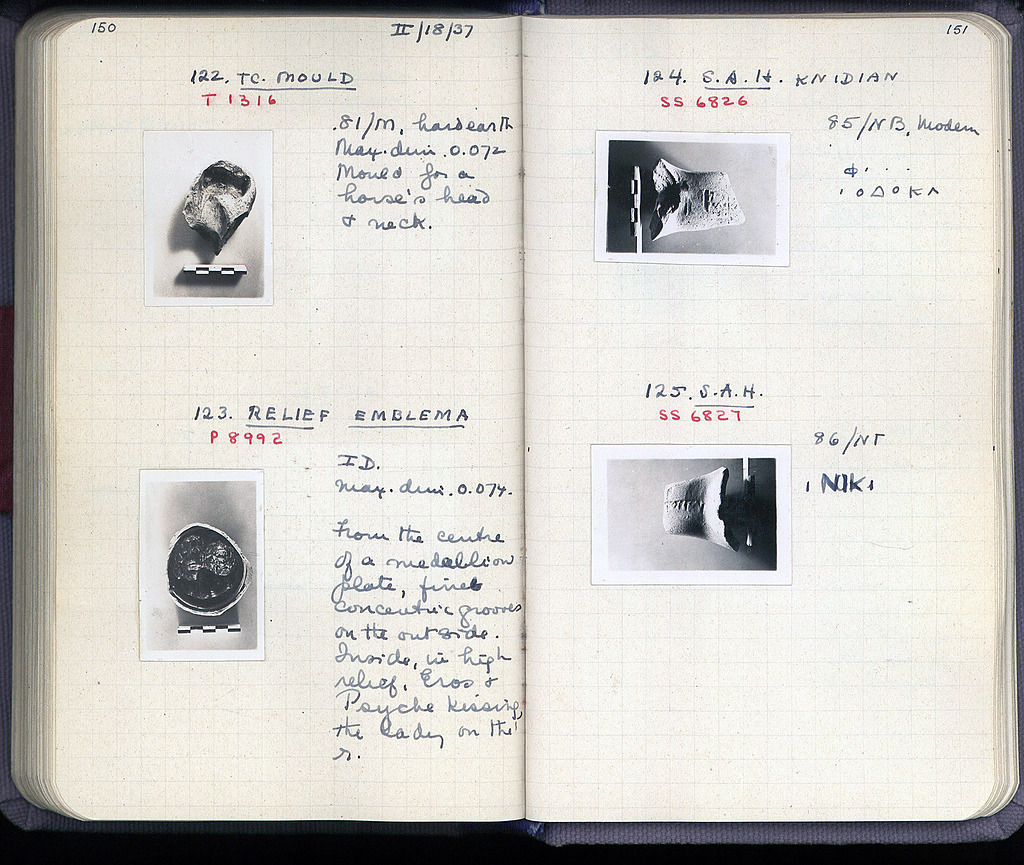 150
II/18/37
122. TC. MOULD
T 1316
.81/M, hard earth
Max. dim. 0.072
Mould for a
horse's head
& neck.
123. RELIEF EMBLEMA
P 8992
ID.
Max. dim. 0.074.
From the centre
of a medallion
plate, fine
concentric grooves
on the outside.
Inside, in high
relief, Eros &
Psyche kissing,
the lady on the
r.
151
124. S.A.H. KNIDIAN
SS 6826
85/NB, Modern
Φ
ΟΔΟΚΛ
125. S.A.H.
SS 6827
86/NT
NIK